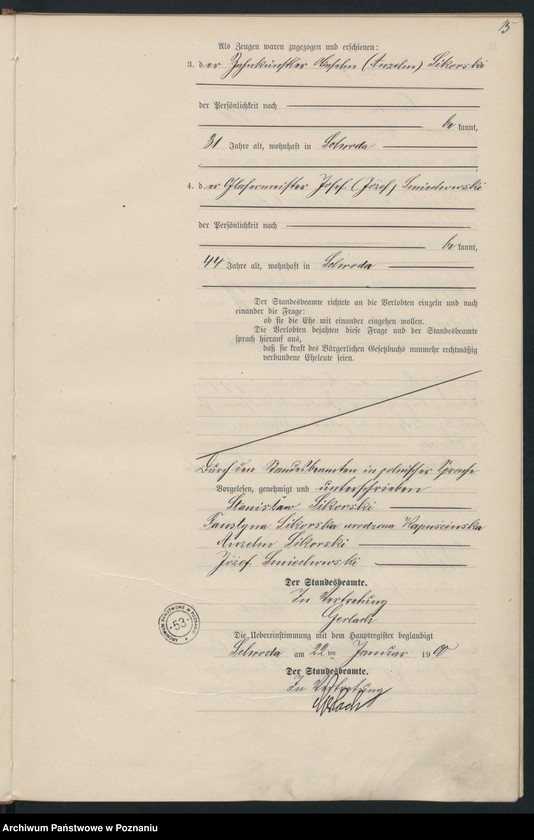 15
Als Zeugen waren zugezogen und erschienen:
3. der Zahnkünstler Anselm (Anzelm) Sikorski
der Persönlichkeit nach
bekannt,
31 Jahre alt, wohnhaft in Schroda
4. der Glasermeister Josef (Józef) Smiechowski
der Persönlichkeit nach
bekannt,
44 Jahre alt, wohnhaft in Schroda
Der Standesbeamte richtete an die Verlobten einzeln und nach
einander die Frage:
ob sie die Ehe mit einander eingehen wollen.
Die Verlobten bejahten diese Frage und der Standesbeamte
sprach hierauf aus,
daß sie kraft des Bürgerlichen Gesetzbuchs nunmehr rechtmäßig
verbundene Eheleute seien.
Durch den Standesbeamten in polnischer Sprache
Vorgelesen, genehmigt und unterschrieben
Stanisław Sikorski
Faustyna Sikorska urodzona Kapuścinska
Anzelm Sikorski
Józef Smiechowski
Der Standesbeamte.
In Vertretung
Gerlach
Die Uebereinstimmung mit dem Hauptregister beglaubigt
Schroda am 22ten Januar 19
Der Standesbeamte.
In Vertretung
Gerlach
ARCHIWUM PAŃSTWOWE W POZNANIU
53
Archiwum Państwowe w Poznaniu